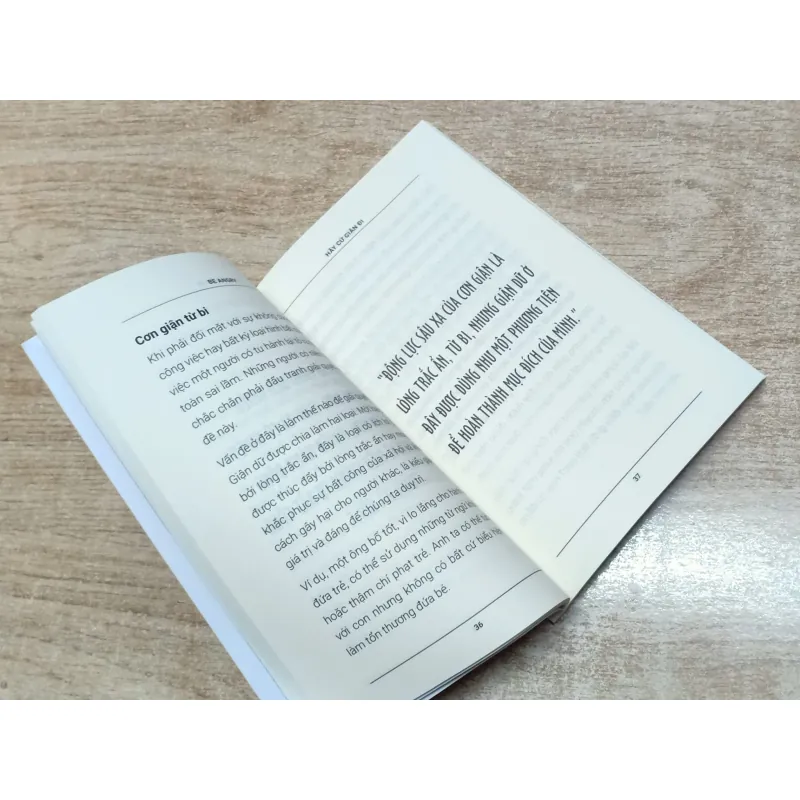 BE ANGRY
Cơn giận từ bi
Khi phải đối mặt với sự không
công việc hay bất kỳ loại hình bất
việc một người có tu hành lại tỏ
toàn sai lầm. Những người có
chắc chắn phải đấu tranh giải quyết
đề này.
Vấn đề ở đây là làm thế nào để giải
Giận dữ được chia làm hai loại. Một
bởi lòng trắc ẩn, đây là loại có ích
được thúc đẩy bởi lòng trắc ẩn hay
khắc phục sự bất công của xã hội và
cách gây hại cho người khác, là kiểu
giá trị và đáng để chúng ta duy trì.
Ví dụ, một ông bố tốt, vì lo lắng cho hành
đứa trẻ, có thể sử dụng những từ ngữ
hoặc thậm chí phạt trẻ. Anh ta có thể
với con nhưng không có bất cứ biểu
làm tổn thương đứa bé.
36
HÃY CỨ GIẬN ĐI
"ĐỘNG LỰC SÂU XA CỦA CƠN GIẬN LÀ
LÒNG TRẮC ẨN, TỪ BI, NHƯNG GIẬN DỮ Ở
ĐÂY ĐƯỢC DÙNG NHƯ MỘT PHƯƠNG TIỆN
ĐỂ HOÀN THÀNH MỤC ĐÍCH CỦA MÌNH."
37